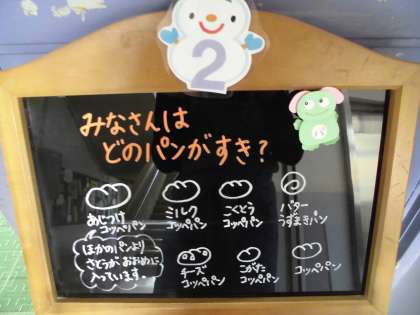 2
みなさんは
どのパンがすき?
あじつけ
コッペパン
ミルク
コッペパン
こくとう
コッペパン
バター
うずまきパン
ほかのパンより
さとうが おおめに
入っています。
チーズ
コッペパン
こがた
コッペパン
コッペパン